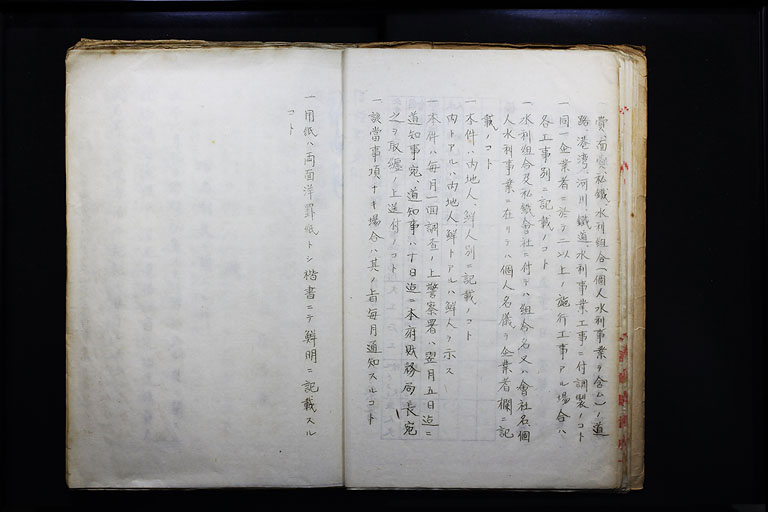 費、面費、私鐵、水利組合（個人水利事業ヲ含ム）ノ道
路、港湾、河川、鐵道、水利事業、工事ニ付調製ノコト
一同一企業者ニ於テ二以上ノ施行工事アル場合ハ
各工事別ニ記載ノコト
一水利組合及私鐵會社ニ付テハ組合名又ハ會社名、個
人水利事業ニ在リテハ個人名儀ヲ企業者欄ニ記
載ノコト
一本件ハ内地人、鮮人別ニ記載ノコト
内トアルハ内地人鮮トアルハ鮮人ヲ示ス
一本件ハ毎月一回調査ノ上警察署ハ翌月五日迄ニ
道知事宛、道知事ハ十日迄ニ本府財務局長宛
之ヲ取纒ノ上送付ノコト
一該當事項ナキ場合ハ其ノ旨毎月通知スルコト
一用紙ハ両面洋罫紙トシ楷書ニテ鮮明ニ記載スル
コト